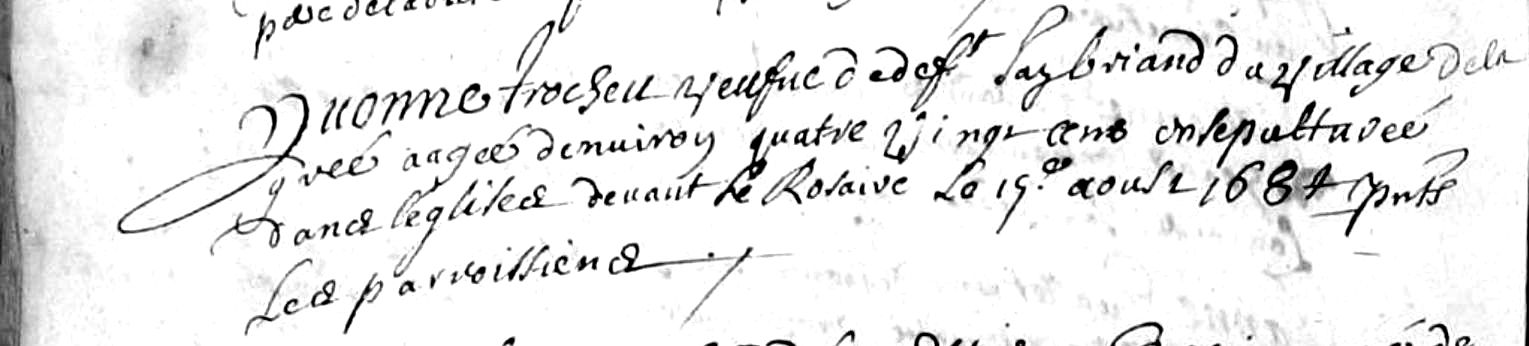 Yuonne trocheu veufue de deft Jay briand du village de la
gree aagee denuiron quatre vingt cens ensepulturee
dans leglise deuant le Rosaire Le 15e aoust 1684 pnts
Les parroissiens